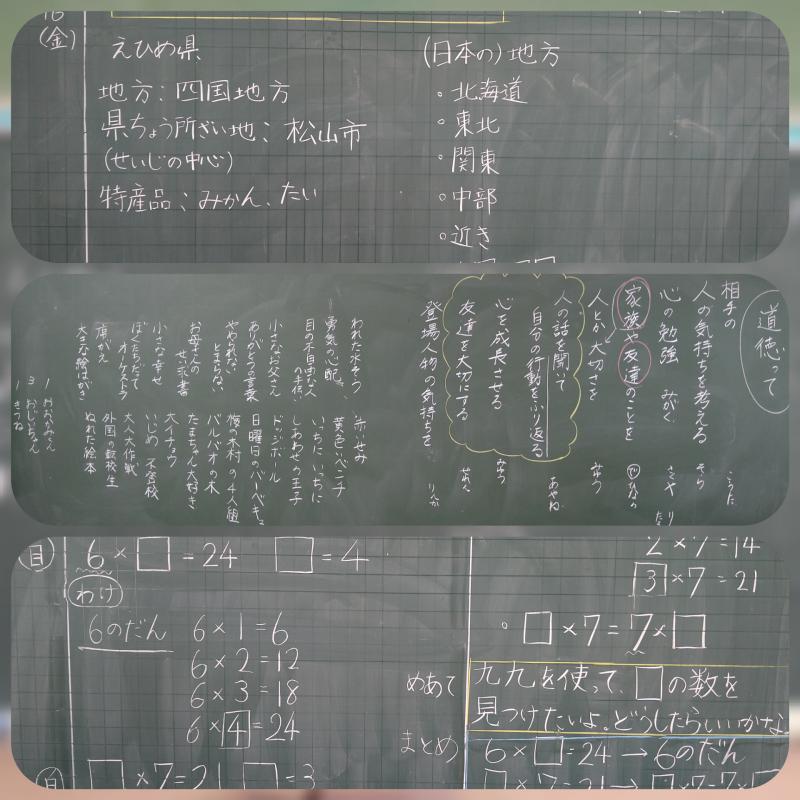 (金)
えひめ県
地方：四国地方
県ちょう所ざい地：松山市
(せいじの中心)
特産品：みかん、たい
(日本の)地方
。北海道
。東北
。関東
。中部
。近き
道徳って
相手の
人の気持ちを考える
心の勉強 みがく
家族や友達のことを
人とか大切さを
人の話を聞いて
自分の行動をふり返る
心を成長させる
友達を大切にする
登場人物の気持ちを
こうた
そら
あやね
りんか
われた水そう
勇気の心配、
目の不自由な人の手伝い
小さなお父さん
ありがとうの言葉
やめられないとまらない
お母さんのせい求書
小さな幸せ
ぼくたちだってオーケストラ
席がえ
大きな絵はがき
赤いせみ
黄色いベンチ
いちにいちに
しあわせの王子
ドッジボール
日曜日のバーベキュー
桜の木村の4人組
バルバオの木
たまちゃん大好き
大イチョウ
いじめ 不登校
大人大作戦
外国の転校生
ぬれた絵本
1 おおかみさん
3 おじいちゃん
1 きつね
6×□=24 □=4
わけ
6のだん
6×1=6
6×2=12
6×3=18
6×4=24
□×7=21 □=3
2×7=14
3×7=21
。□×7=7×□
めあて
九九を使って、□の数を
見つけたいよ。どうしたらいいかな。
まとめ
6×□=24→6のだん
□×7=21→□×7=7×□